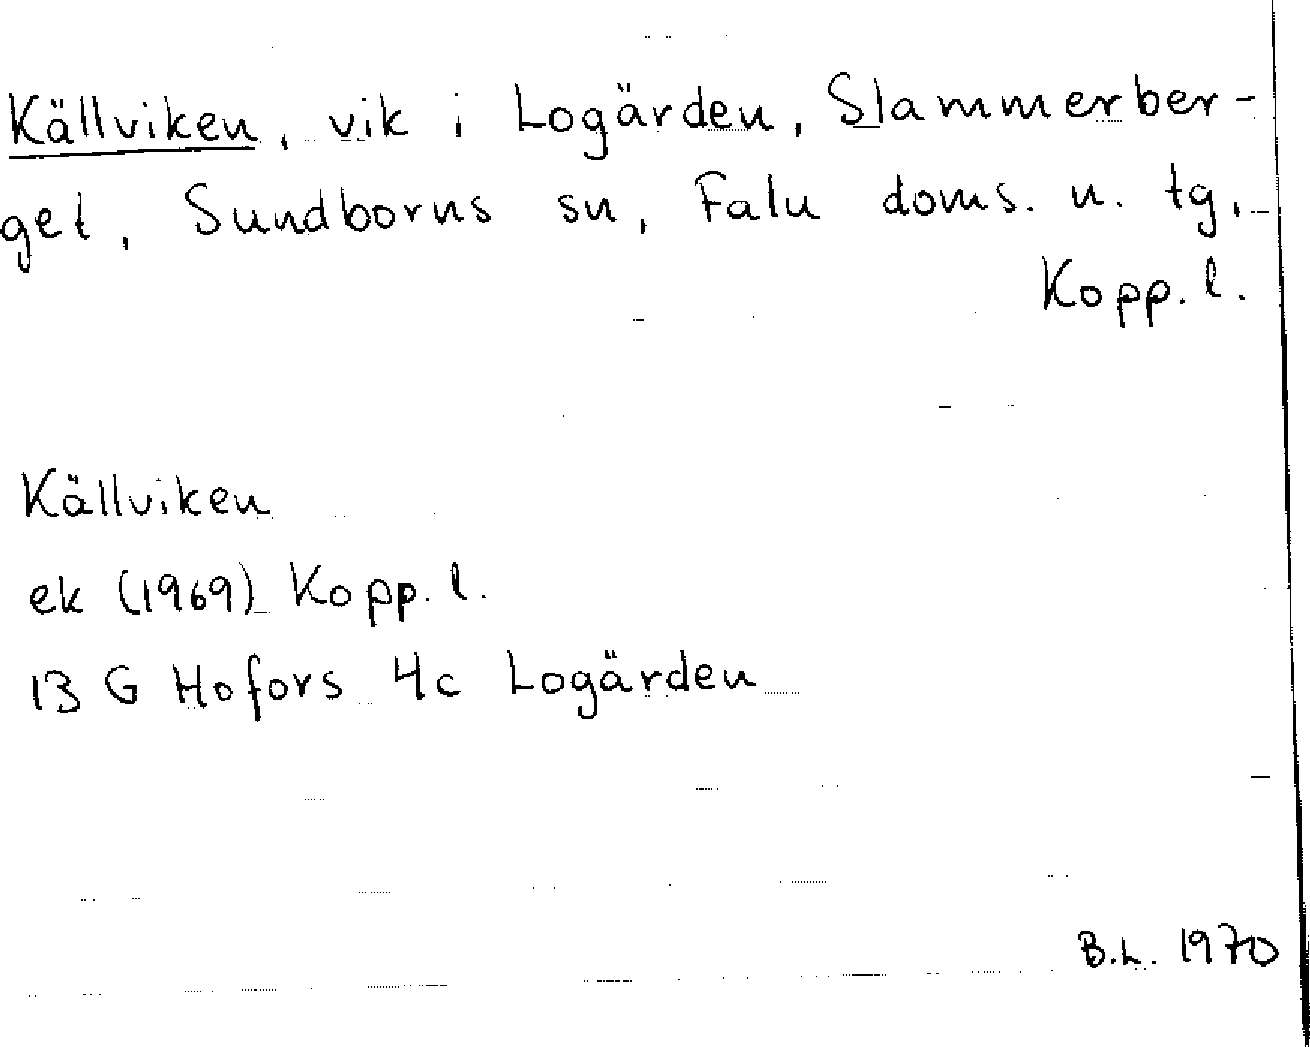 Källviken, vik i Logärden, Slammerber-
get, Sundborns sn, Falu doms. n. tg,
Kopp. l.
Källviken
ek (1969) Kopp. l.
13 G Hofors 4c Logärden
B.L. 1970